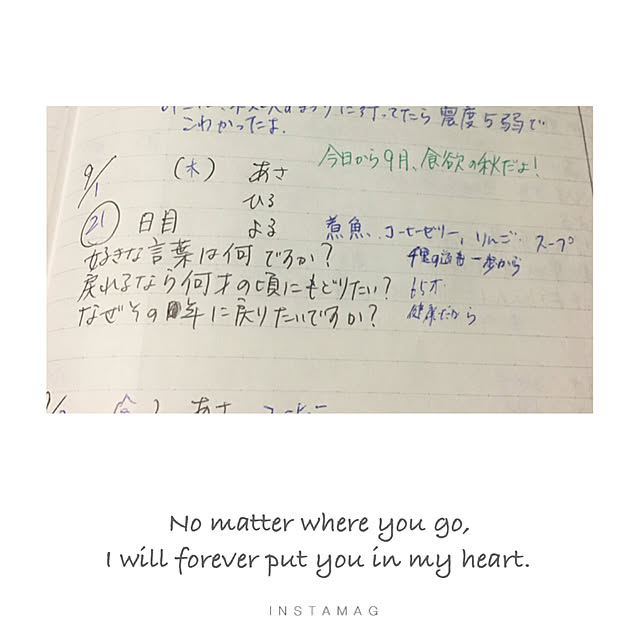 行ってたら震度5弱で
こわかったよ.
今日から9月、食欲の秋だよ!
9/1 (木) あさ
ひる
21 日目 よる 煮魚、コーヒーゼリー、りんご、スープ
好きな言葉は何ですか? 千里の道も一歩から
戻れるなら何才の頃にもどりたい? 65才
なぜその年に戻りたいですか? 健康だから
あさ コーヒー
No matter where you go,
I will forever put you in my heart.
INSTAMAG